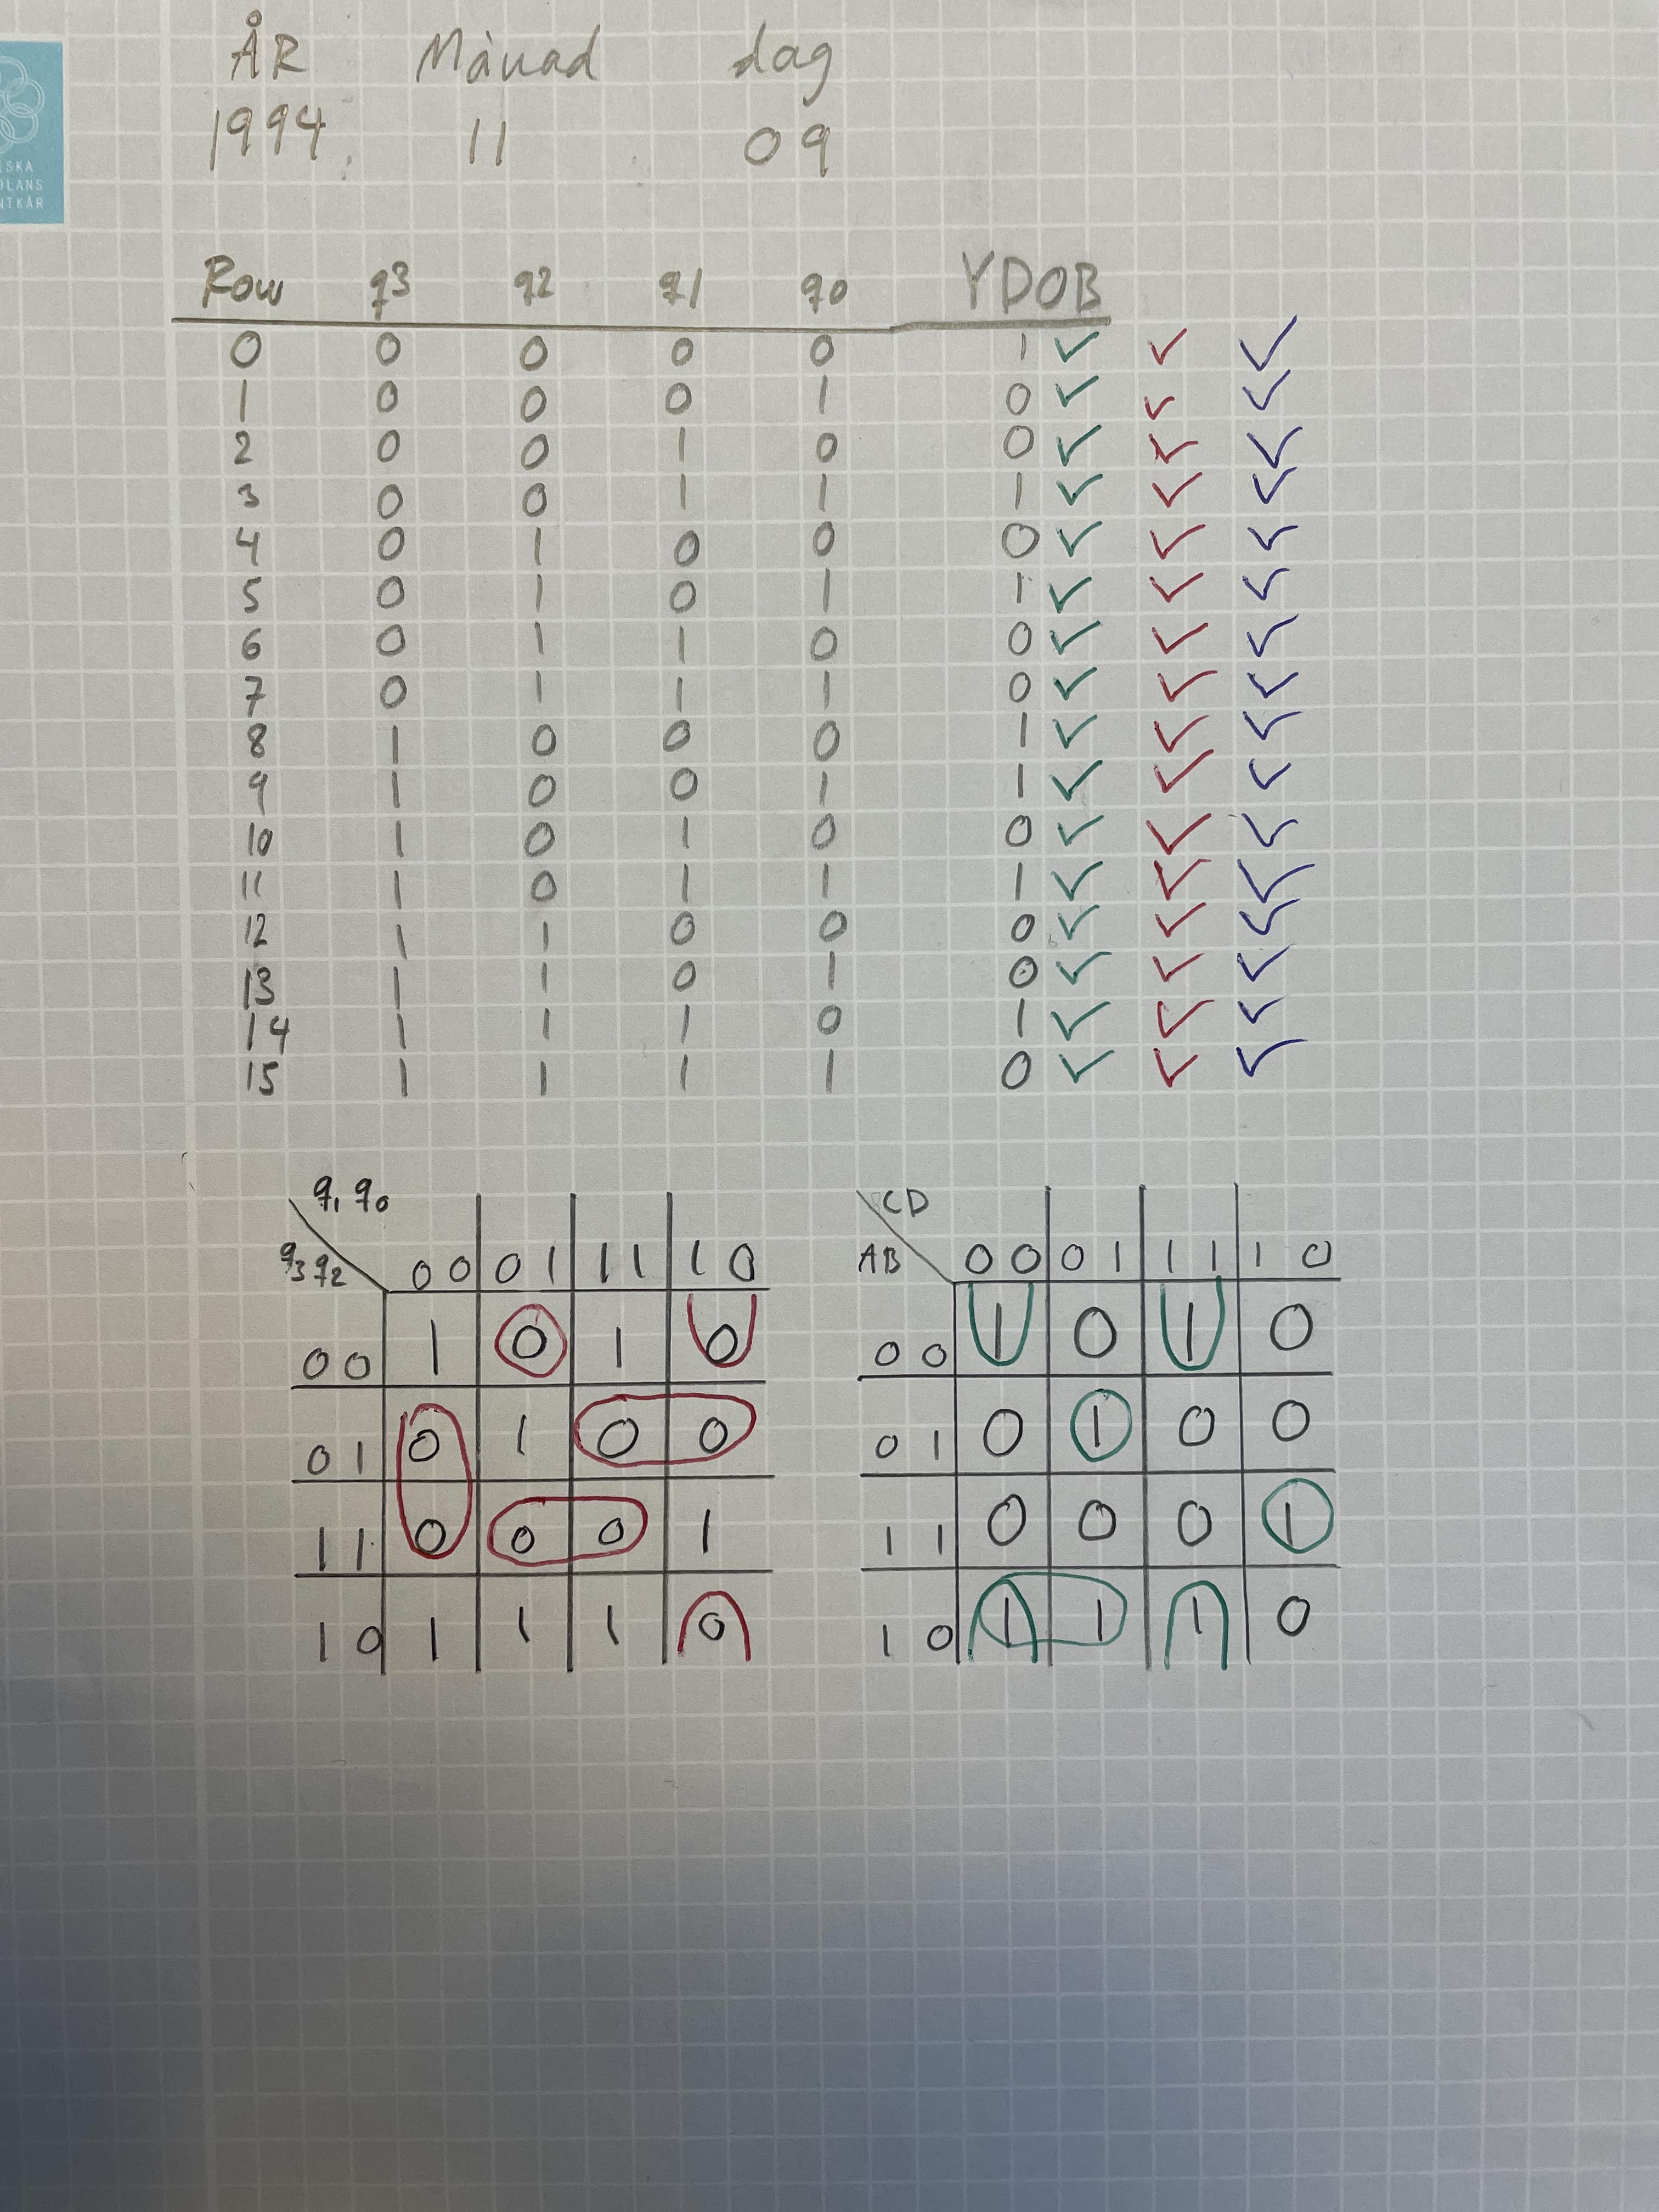 ÅR Månad dag
1994 11 09
ESKA
OLANS
NTKÅR
Row q3 q2 q1 q0 YDOB
0 0 0 0 0 1 ✓ ✓ ✓
1 0 0 0 1 0 ✓ ✓ ✓
2 0 0 1 0 0 ✓ ✓ ✓
3 0 0 1 1 1 ✓ ✓ ✓
4 0 1 0 0 0 ✓ ✓ ✓
5 0 1 0 1 1 ✓ ✓ ✓
6 0 1 1 0 0 ✓ ✓ ✓
7 0 1 1 1 0 ✓ ✓ ✓
8 1 0 0 0 1 ✓ ✓ ✓
9 1 0 0 1 1 ✓ ✓ ✓
10 1 0 1 0 0 ✓ ✓ ✓
11 1 0 1 1 1 ✓ ✓ ✓
12 1 1 0 0 0 ✓ ✓ ✓
13 1 1 0 1 0 ✓ ✓ ✓
14 1 1 1 0 1 ✓ ✓ ✓
15 1 1 1 1 0 ✓ ✓ ✓
q1 q0
q3 q2 00 01 11 10
00 1 0 1 0
01 0 1 0 0
11 0 0 0 1
10 1 1 1 0
CD
AB 00 01 11 10
00 1 0 1 0
01 0 1 0 0
11 0 0 0 1
10 1 1 1 0